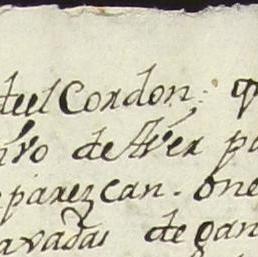 del Cordon.
de Aver pa
parezcan. one
avadas de gan